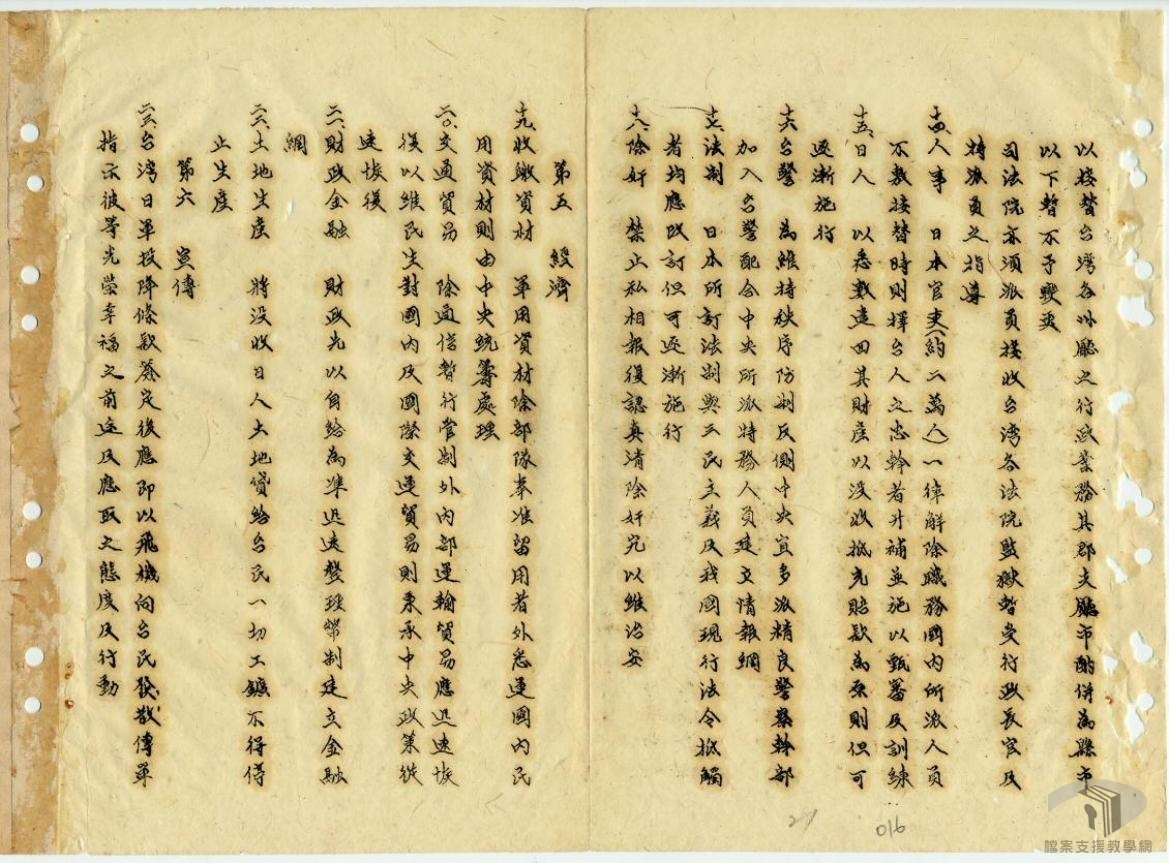 以接替台湾各州廳之行政業務其郡支廳市酌併為縣市
以下暫不予變更
司法院亦須派員接收台湾各法院監獄暫受行政長官及
特派員之指導
十四、人事　日本官吏(約二萬人)一律解除職務國內所派人員
不敷接替時則擇台人之忠幹者升補並施以甄審及訓練
十五、日人　以悉數遣回其財產以没收抵充賠款為原則但可
逐漸施行
十六、台警　為維持秩序防制反側中央宜多派精良警察幹部
加入台警配合中央所派特務人員建立情報網
十七、法制　日本所訂法制與三民主義及我國現行法令抵觸
者均應改訂但可逐漸施行
十八、除奸　禁止私相報復認真清除奸宄以維治安
第五　經濟
十九、收繳資材　軍用資材除部隊奉准留用者外悉運國內民
用資材則由中央統籌處理
二〇、交通貿易　除通信暫行管制外內部運輸貿易應迅速恢
復以維民生對國內及國際交通貿易則秉承中央政策從
速恢復
二一、財政金融　財政先以自給為準迅速整理幣制建立金融
網
二二、土地生產　將没收日人土地貸給台民一切工鑛不得停
止生產
第六　宣傳
二三、台湾日軍投降條款簽定後應即以飛機向台民發散傳單
指示彼等光榮幸福之前途及應取之態度及行動
27
016
檔案支援教學網